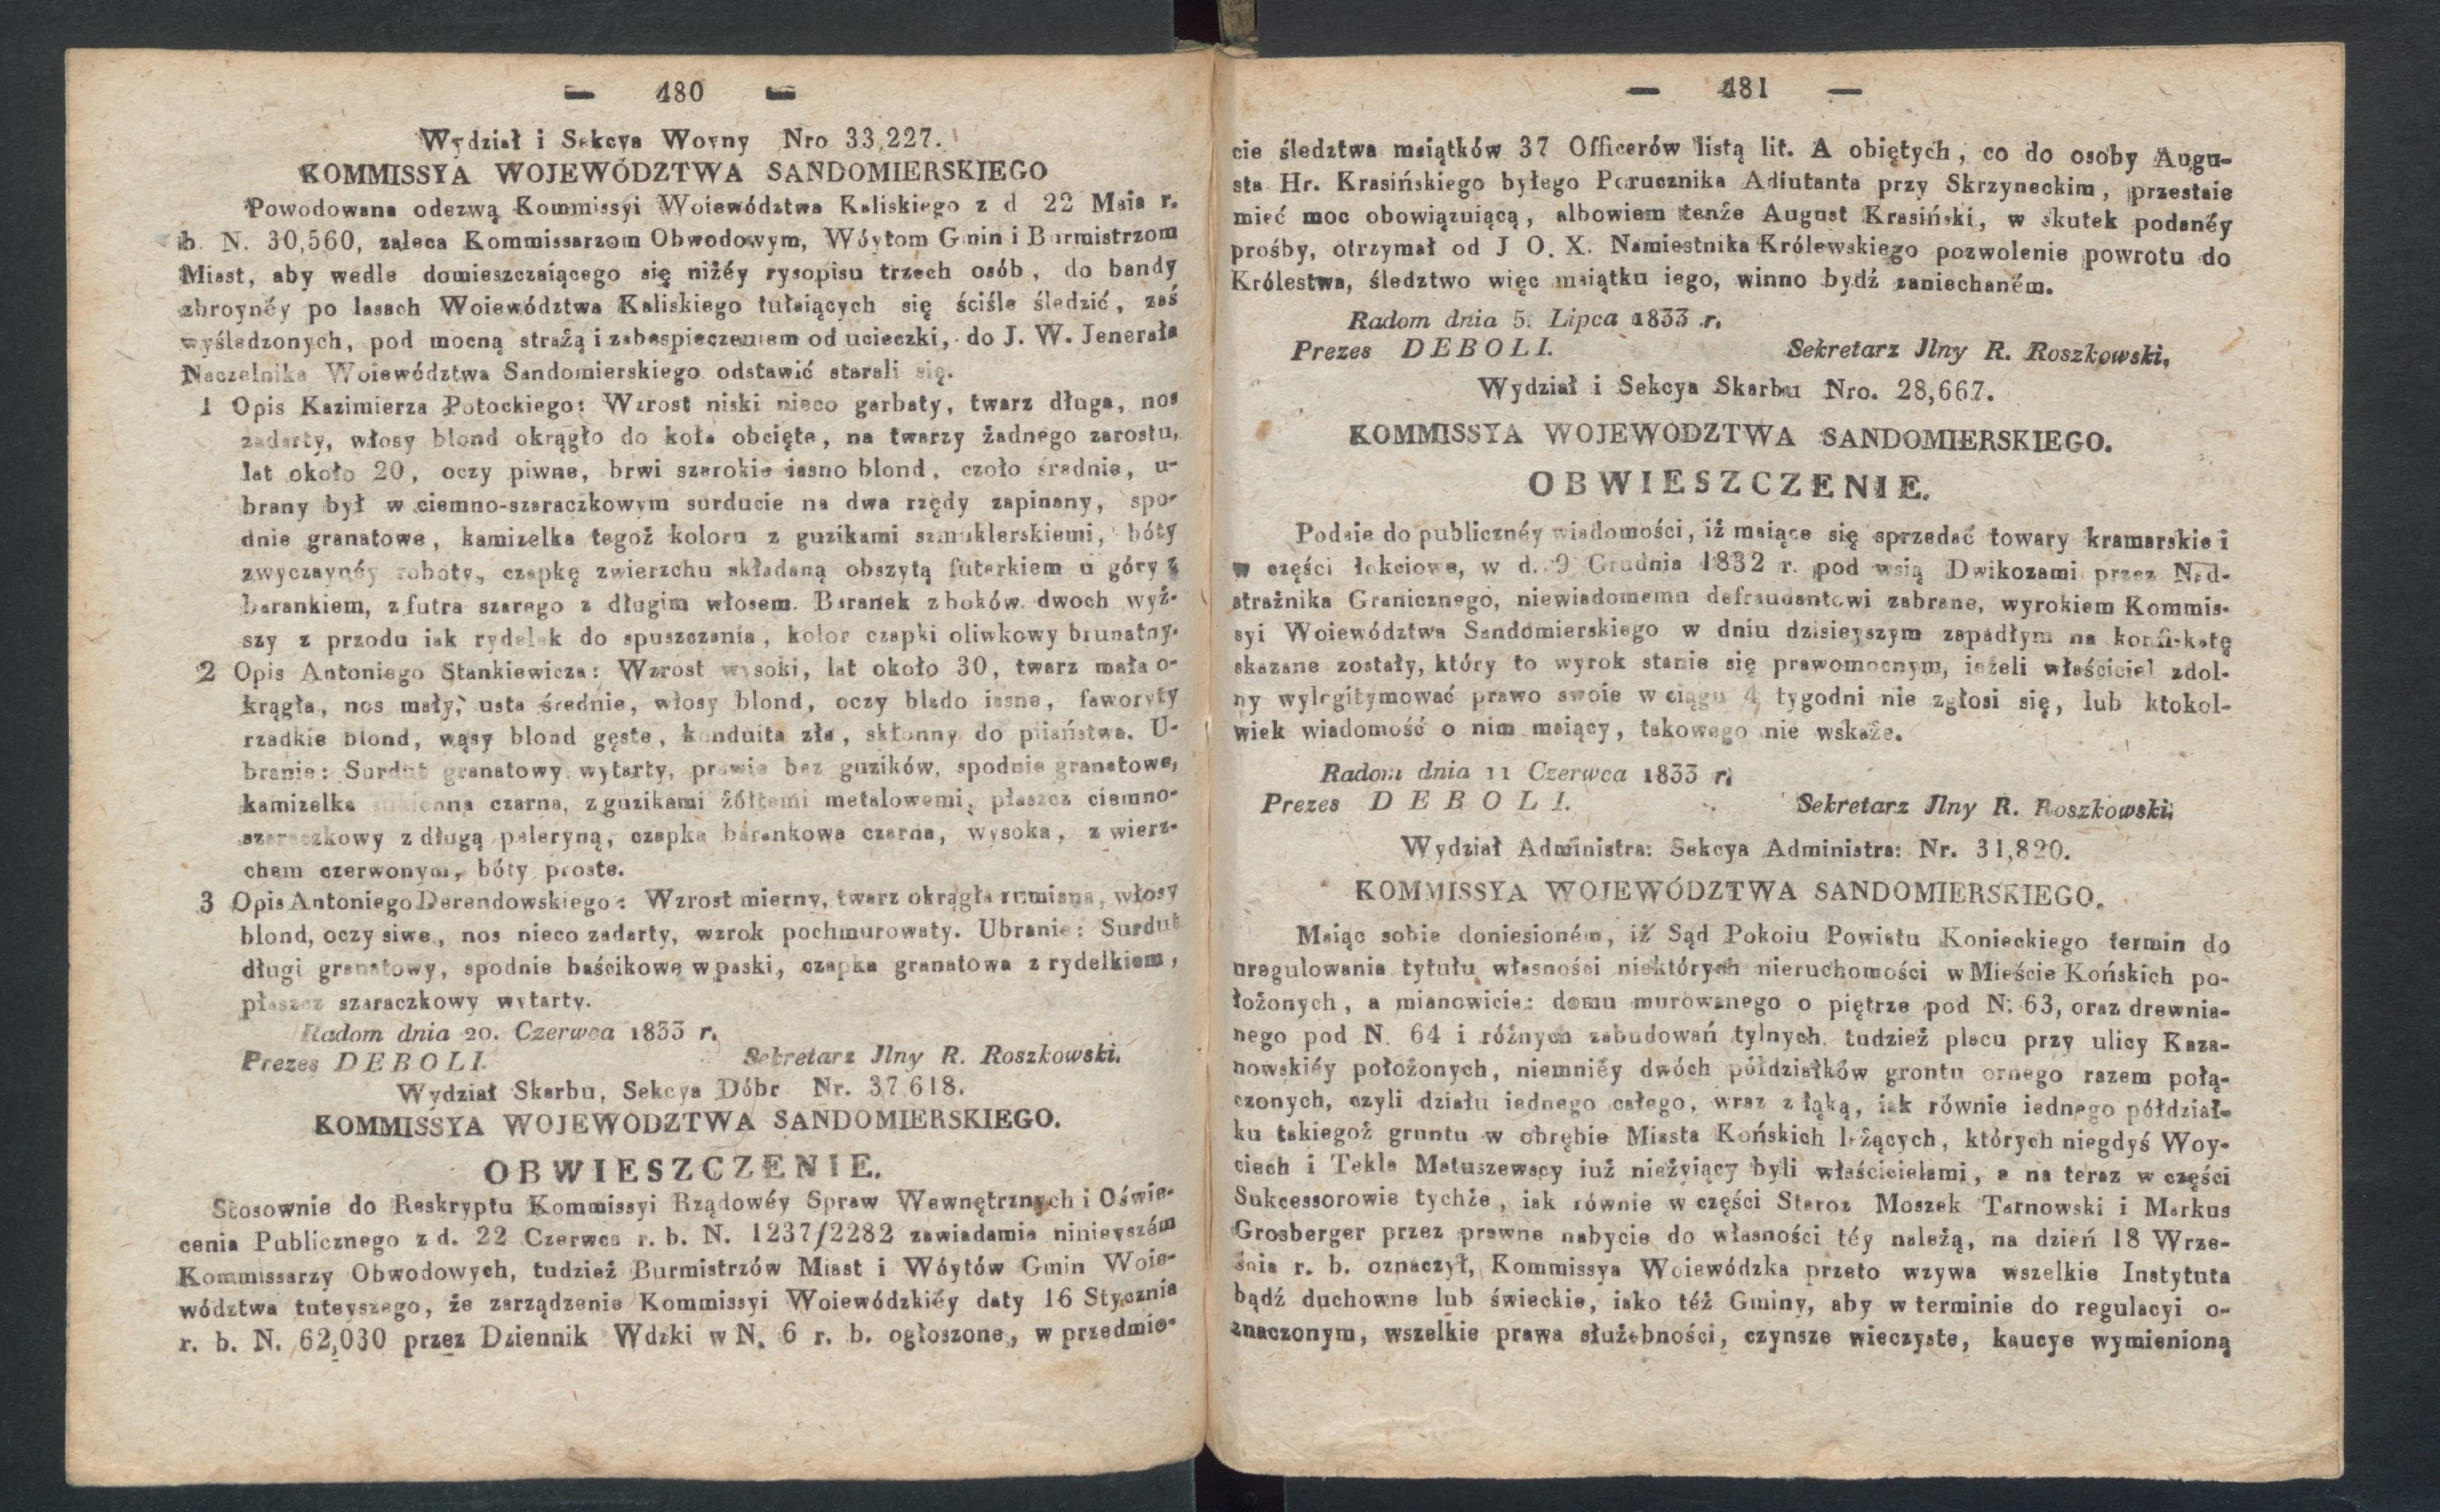 — 480 —
Wydział i Sekcya Woyny Nro 33,227.
KOMMISSYA WOJEWÓDZTWA SANDOMIERSKIEGO
Powodowana odezwą Kommissyi Woiewództwa Kaliskiego z d 22 Maia r.
b. N. 30,560, zaleca Kommissarzom Obwodowym, Wóytom Gmin i Burmistrzom
Miast, aby wedle domieszczaiącego się niżéy rysopisu trzech osób, do bandy
zbroynéy po lasach Woiewództwa Kaliskiego tułaiących się ściśle śledzić, zaś
wyśledzonych, pod mocną strażą i zabespieczeniem od ucieczki, do J. W. Jenerała
Naczelnika Woiewództwa Sandomierskiego odstawić starali się.
1 Opis Kazimierza Potockiego: Wzrost niski nieco garbaty, twarz długa, nos
zadarty, włosy blond okrągło do koła obcięte, na twarzy żadnego zarostu,
lat około 20, oczy piwne, brwi szerokie iasno blond, czoło średnie, u-
brany był w ciemno-szaraczkowym surducie na dwa rzędy zapinany, spo-
dnie granatowe, kamizelka tegoż koloru z guzikami szmuklerskiemi, bóty
zwyczaynéy roboty, czapkę zwierzchu składaną obszytą futerkiem u góry z
barankiem, z futra szarego z długim włosem. Baranek z boków dwoch wyż-
szy z przodu iak rydelek do spuszczania, kolor czapki oliwkowy brunatny.
2 Opis Antoniego Stankiewicza: Wzrost wysoki, lat około 30, twarz mała o-
krągła, nos mały, usta średnie, włosy blond, oczy blado iasne, faworyty
rzadkie blond, wąsy blond gęste, konduita zła, skłonny do piiaństwa. U-
branie: Surdut granatowy wytarty, prawie bez guzików, spodnie granatowe,
kamizelka sukienna czarna, z guzikami żółtemi metalowemi, płaszcz ciemno-
szaraczkowy z długą peleryną, czapka barankowa czarna, wysoka, z wierz-
chem czerwonym, bóty proste.
3 Opis Antoniego Derendowskiego: Wzrost mierny, twarz okrągła rumiana, włosy
blond, oczy siwe, nos nieco zadarty, wzrok pochmurowaty. Ubranie: Surdut
długi granatowy, spodnie baścikowe w paski, czapka granatowa z rydelkiem,
płaszcz szaraczkowy wytarty.
Radom dnia 20. Czerwca 1833 r.
Prezes DEBOLI. Sekretarz Jlny R. Roszkowski.
Wydział Skarbu, Sekcya Dóbr Nr. 37,618.
KOMMISSYA WOJEWODZTWA SANDOMIERSKIEGO.
OBWIESZCZENIE.
Stosownie do Reskryptu Kommissyi Rządowéy Spraw Wewnętrznych i Oświe-
cenia Publicznego z d. 22 Czerwca r. b. N. 1237/2282 zawiadamia ninieyszém
Kommissarzy Obwodowych, tudzież Burmistrzów Miast i Wóytów Gmin Woie-
wództwa tuteyszego, że zarządzenie Kommissyi Woiewódzkiéy daty 16 Stycznia
r. b. N. 62,030 przez Dziennik Wdzki w N. 6 r. b. ogłoszone, w przedmio-
— 481 —
cie śledztwa maiątków 37 Officerów listą lit. A obiętych, co do osoby Augu-
sta Hr. Krasińskiego byłego Porucznika Adiutanta przy Skrzyneckim, przestaie
mieć moc obowiązuiącą, albowiem tenże August Krasiński, w skutek podanéy
prośby, otrzymał od J O. X. Namiestnika Królewskiego pozwolenie powrotu do
Królestwa, śledztwo więc maiątku iego, winno bydź zaniechaném.
Radom dnia 5. Lipca 1833 r.
Prezes DEBOLI. Sekretarz Jlny R. Roszkowski,
Wydział i Sekcya Skarbu Nro. 28,667.
KOMMISSYA WOJEWODZTWA SANDOMIERSKIEGO.
OBWIESZCZENIE.
Podaie do publicznéy wiadomości, iż maiące się sprzedać towary kramarskie i
w części łokciowe, w d. 9 Grudnia 1832 r. pod wsią Dwikozami przez Nad-
strażnika Granicznego, niewiadomemu defraudantowi zabrane, wyrokiem Kommis-
syi Woiewództwa Sandomierskiego w dniu dzisieyszym zapadłym na konfiskatę
skazane zostały, który to wyrok stanie się prawomocnym, ieżeli właściciel zdol-
ny wylegitymować prawo swoie w ciągu 4 tygodni nie zgłosi się, lub ktokol-
wiek wiadomość o nim maiący, takowego nie wskaże.
Radom dnia 11 Czerwca 1833 r.
Prezes DEBOLI. Sekretarz Jlny R. Roszkowski.
Wydział Administra: Sekcya Administra: Nr. 31,820.
KOMMISSYA WOJEWÓDZTWA SANDOMIERSKIEGO.
Maiąc sobie doniesioném, iż Sąd Pokoiu Powiatu Konieckiego termin do
uregulowania tytułu własności niektórych nieruchomości w Mieście Końskich po-
łożonych, a mianowicie: domu murowanego o piętrze pod N. 63, oraz drewnia-
nego pod N. 64 i różnych zabudowań tylnych, tudzież placu przy ulicy Kaza-
nowskiéy położonych, niemniéy dwóch półdziałków grontu ornego razem połą-
czonych, czyli działu iednego całego, wraz z łąką, iak równie iednego półdział-
ku takiegoż gruntu w obrębie Miasta Końskich leżących, których niegdyś Woy-
ciech i Tekla Matuszewscy iuż nieżyiący byli właścicielami, a na teraz w części
Sukcessorowie tychże, iak równie w części Staroz Moszek Tarnowski i Markus
Grosberger przez prawne nabycie do własności téy należą, na dzień 18 Wrze-
śnia r. b. oznaczył, Kommissya Woiewódzka przeto wzywa wszelkie Instytuta
bądź duchowne lub świeckie, iako też Gminy, aby w terminie do regulacyi o-
znaczonym, wszelkie prawa służebności, czynsze wieczyste, kaucye wymienioną